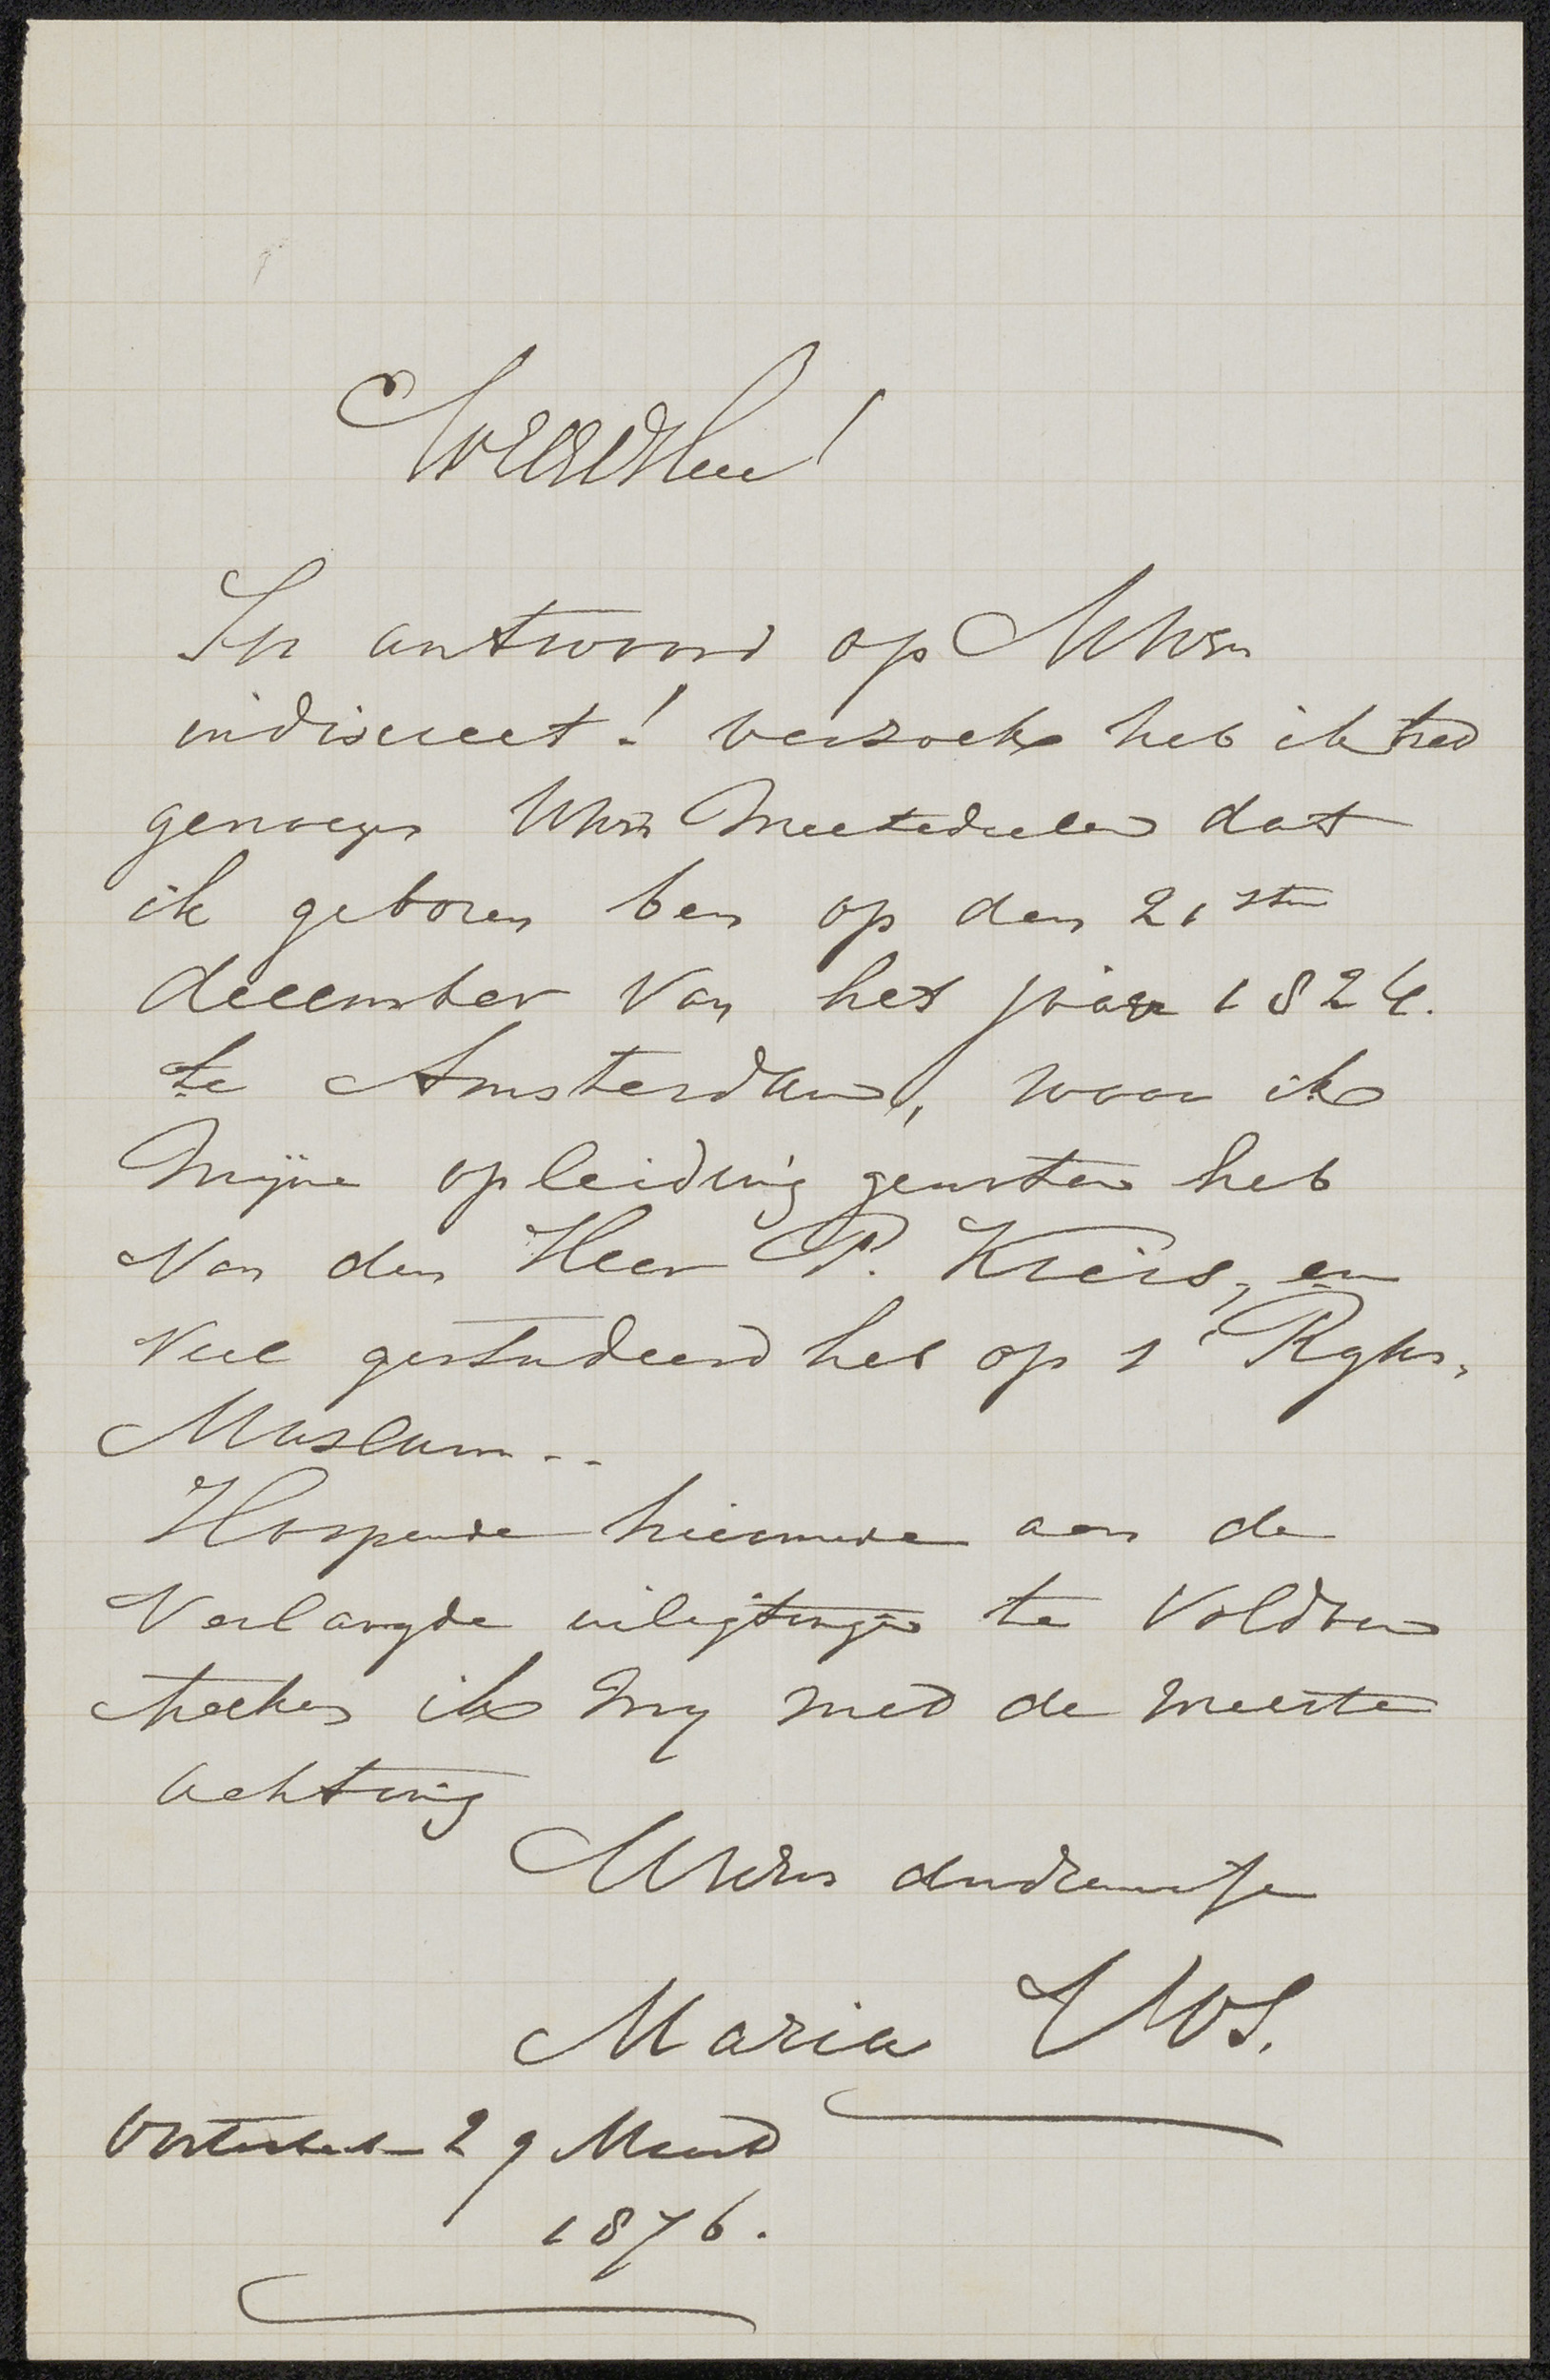 WelEdHeer!
In antwoord op UWEd
indiscreet! verzoek heb ik het
genoegen UWEd Meetedeelen dat
ik geboren ben op den 21sten
december van het jaar 1824.
te Amsterdam, waar ik
Mijne opleiding genoten heb
Van den Heer P. Kiers, en
Veel gestudeerd heb op 's Ryks,
Museum..
Hoopende hiermede aan de
Verlangde inligtingen te Voldoen
noeme ik My met de meeste
achting
UWEd dwdienaresse
Maria Vos.
Oosterbeek 29 Maart
1876.